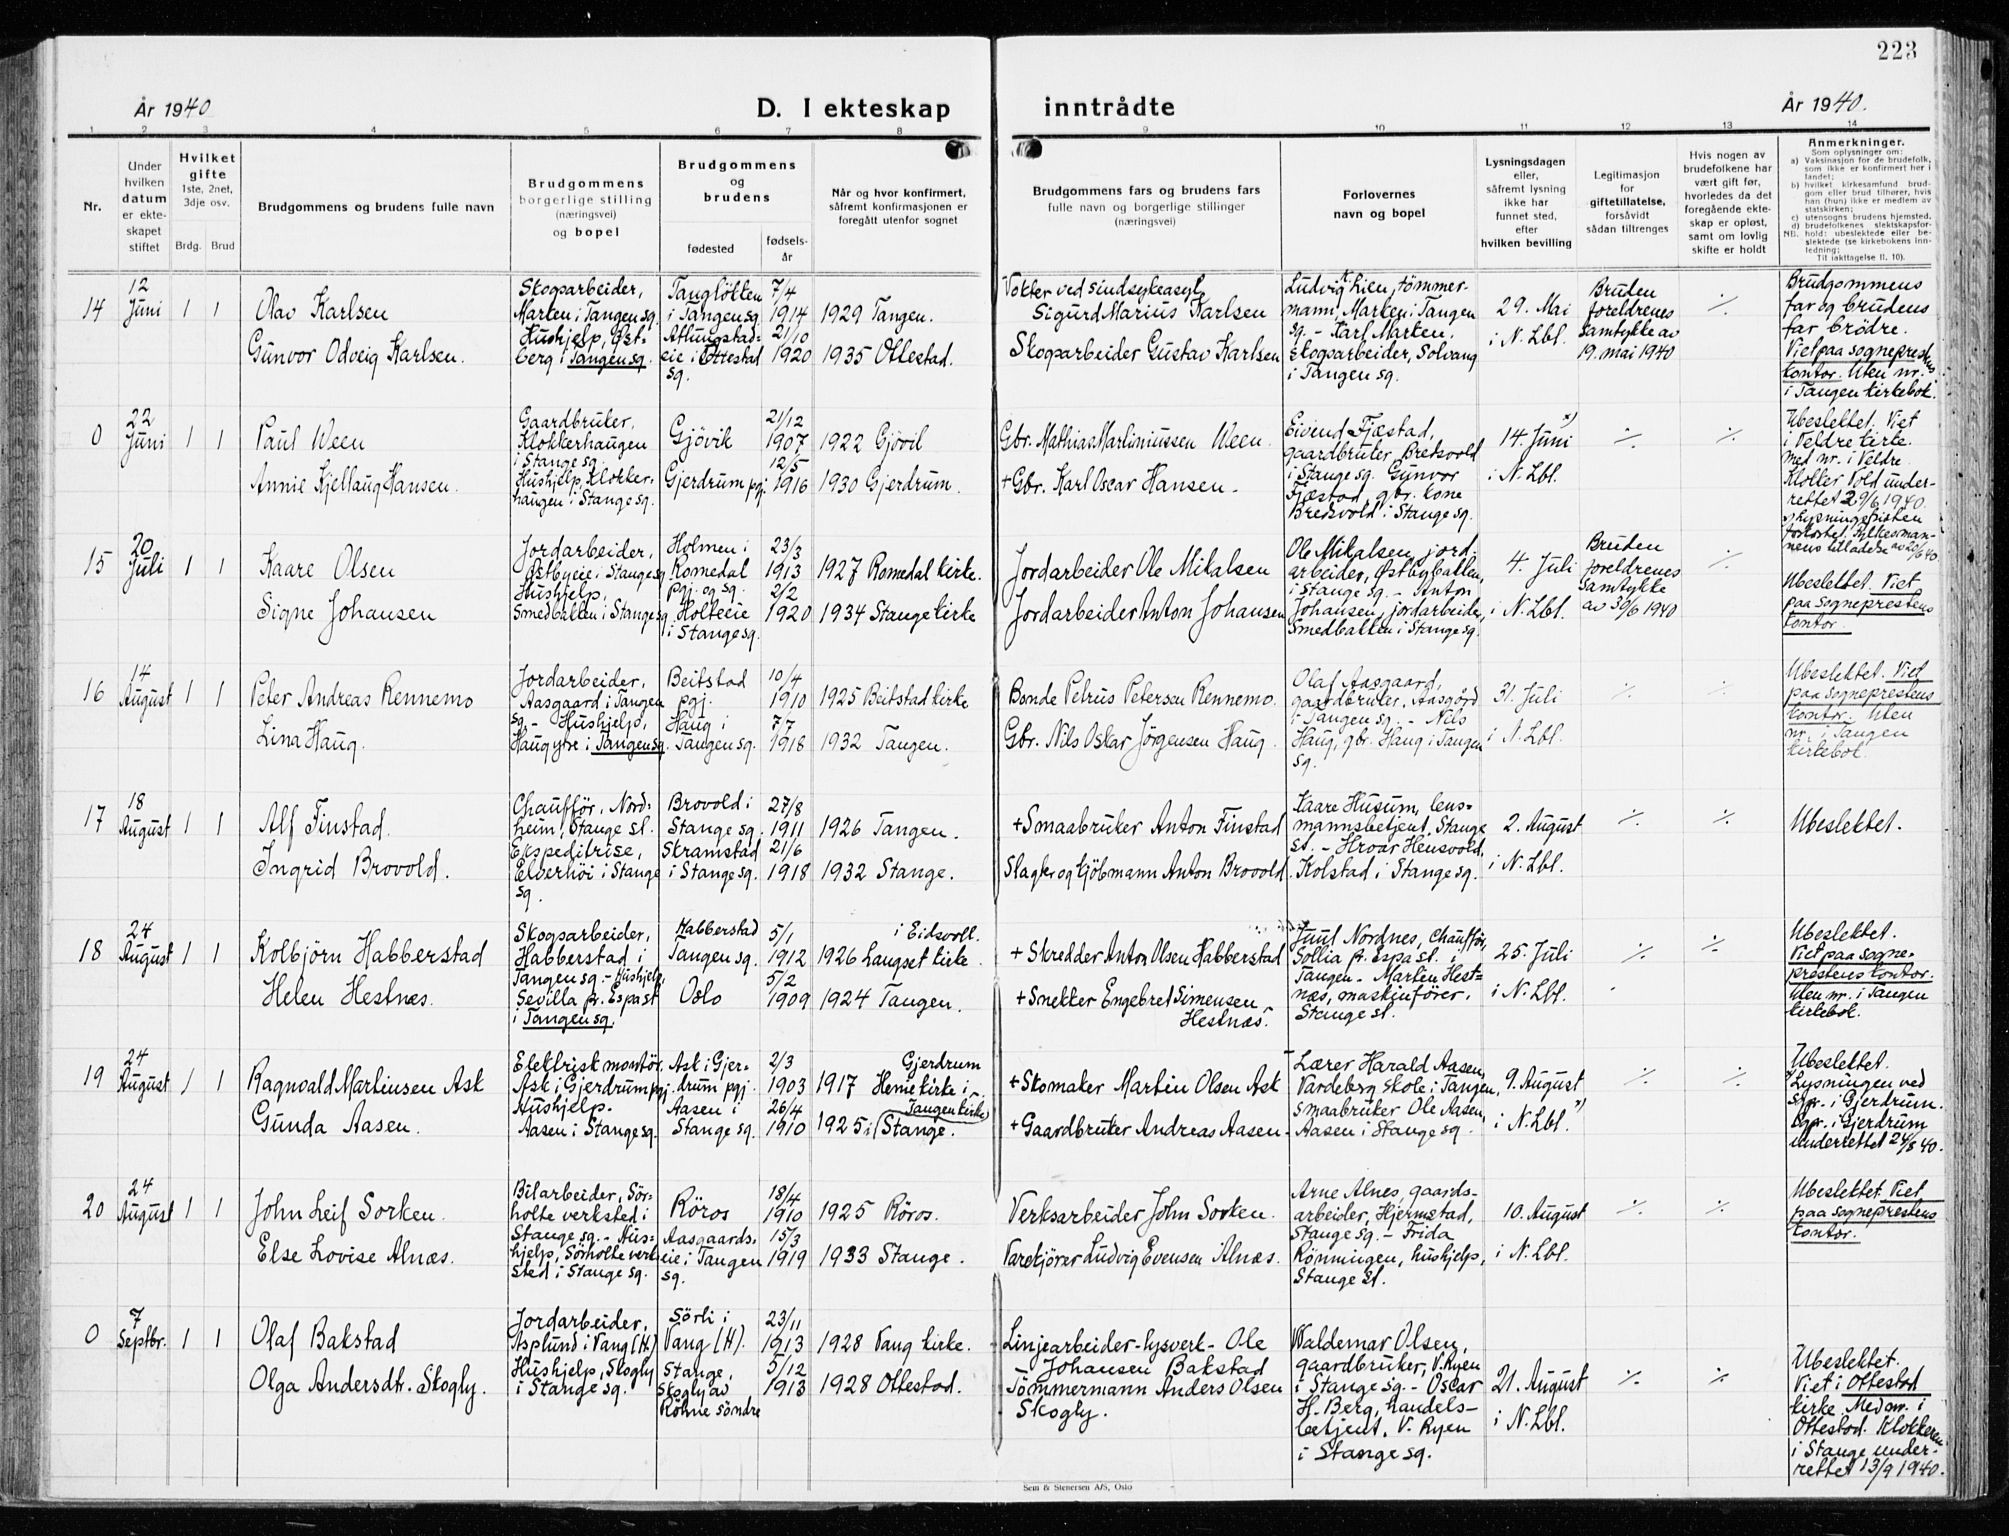 223
År 1940
D. I ekteskap inntrådte
År 1940.
1 2 3 4 5 6 7 8 9 10 11 12 13 14
Nr.
Under
hvilken
datum
er ekte-
skapet
stiftet
Hvilket
gifte
1ste, 2net,
3dje osv.
Brdg. Brud
Brudgommens og brudens fulle navn
Brudgommens
borgerlige stilling
(næringsvei)
og bopel
Brudgommens
og
brudens
fødested
fødsels-
år
Når og hvor konfirmert,
såfremt konfirmasjonen er
foregått utenfor sognet
Brudgommens fars og brudens fars
fulle navn og borgerlige stillinger
(næringsvei)
Forlovernes
navn og bopel
Lysningsdagen
eller,
såfremt lysning
ikke har
funnet sted,
efter
hvilken bevilling
Legitimasjon
for
giftetillatelse,
forsåvidt
sådan tiltrenges
Hvis nogen av
brudefolkene har
vært gift før,
hvorledes da det
foregående ekte-
skap er opløst,
samt om lovlig
skifte er holdt
Anmerkninger.
Som oplysninger om:
a) Vaksinasjon for de brudefolk,
som ikke er konfirmert her i
landet;
b) hvilket kirkesamfund brud-
gom eller brud tilhører, hvis
han (hun) ikke er medlem av
statskirken;
c) utensogns brudens hjemsted.
d) brudefolkenes slektskapsfor-
NB. hold: ubeslektede eller be-
slektede (se kirkebokens inn-
ledning;
Til iakttagelse II. 10).
14
12
Juni
1 1
Olav Karlsen
Gunvor Odveig Karlsen.
Skogsarbeider,
Marken i Tangen sg.
Hushjelp, Øst-
berg i Tangen sg.
i Tangen sg.
eie i Ottestad
sg.
7/4
1914
21/10
1920
1929 Tangen.
1935 Ottestad.
Vokter ved sindsykeasyl
Sigurd Marius Karlsen
Skogsarbeider Gustav Karlsen
Ludvig Lien, tömmer-
mann, Marken i Tangen
sg. - Karl Marken,
skogsarbeider, Solvang
i Tangen sg.
29. Mai
i N. Lbl.
Bruden
foreldrenes
samtykke av
19. mai 1940
·/.
Brudgommens
far og brudens
far brödre.
Viet paa sogneprestens
kontor. Uten nr.
i Tangen kirkebok.
0
22
Juni
1 1
Paul Ween
Annie Kjellaug Hansen.
Gaardbruker,
Klokkerhaugen
i Stange sg.
Hushjelp, Klokker-
haugen i Stange sg.
Gjövik
Gjerdrum pgj.
21/12
1907
12/5
1916
1922 Gjövik
1930 Gjerdrum.
Gbr. Mathias Martiniussen Ween.
+ Gbr. Karl Oscar Hansen.
Eivend Fjæstad,
gaardbruker, Bredsvold
i Stange sg. Gunvor
Fjæstad, gbr. kone
Bredsvold i Stange sg.
14. Juni x)
i N. Lbl.
·/.
·/.
Ubeslektet. Viet
i Veldre kirke.
med nr. i Veldre.
Klokker Vold under-
rettet 29/6 1940.
x) Lysningsfristen
forkortet. Fylkesman-
nens tilladelse av 20/6 40.
15
20
Juli
1 1
Kaare Olsen
Signe Johansen
Jordarbeider,
Østbyeie i Stange sg.
Hushjelp,
Smedbakken i Stange sg.
Holmen i
Romedal
pgj. og sg.
Holteeie
i Stange sg.
23/3
1913
2/2
1920
1927 Romedal kirke.
1934 Stange kirke
Jordarbeider Ole Mikalsen
Jordarbeider Anton Johansen
Ole Mikalsen, jord-
arbeider, Østbybakken,
i Stange sg. - Anton
Johansen, jordarbeider,
Smedbakken i Stange sg.
4. Juli
i N. Lbl.
Bruden
foreldrenes
samtykke
av 30/6 1940
·/.
Ubeslektet. Viet
paa sogneprestens
kontor.
16
14
August
1 1
Peter Andreas Rennemo
Lina Haug.
Jordarbeider,
Aasgaard i Tangen
sg. - Hushjelp,
Haug ytre i Tangen sg.
Beitstad
pgj.
Haug i
Tangen sg.
10/4
1910
7/7
1918
1925 Beitstad kirke
1932 Tangen.
Bonde Petrus Petersen Rennemo.
Gbr. Nils Oskar Jörgensen Haug.
Olaf Aasgaard,
gaardbruker, Aasgård
i Tangen sg. - Nils
Haug, gbr. Haug i Tangen
sg.
31. Juli
i N. Lbl.
·/.
·/.
Ubeslektet. Viet
paa sogneprestens
kontor. Uten
nr. i Tangen
kirkebok.
17
18
August
1 1
Alf Finstad.
Ingrid Brovold.
Chaufför, Nord-
heim, Stange st.
Ekspeditrise,
Elverhöi i Stange
sg.
Brovold i
Stange sg.
Skramstad
i Stange sg.
27/8
1911
21/6
1918
1926 Tangen.
1932 Stange.
+ Smaabruker Anton Finstad
Slagter og Kjöbmann Anton Brovold.
Kaare Husum, lens-
mannsbetjent, Stange
st. - Hroar Hensvold,
Kolstad i Stange sg.
2. August
i N. Lbl.
·/.
·/.
Ubeslektet.
18
24
August
1 1
Kolbjörn Habberstad
Helen Hestnæs.
Skogsarbeider,
Habberstad i
Tangen sg. - Hushjelp,
Sevilla pr. Espa st
i Tangen sg.
Habberstad
Tangen sg.
Oslo
5/1
1912
5/2
1909
i Eidsvoll.
1926 Langset kirke
1924 Tangen.
+ Skredder Anton Olsen Habberstad
+ Snekker Engebret Simensen
Hestnæs.
Juul Nordnes, Chaufför,
Sollia pr. Espa st. i
Tangen - Martin Hest-
næs, maskinförer.
Stange st.
25. Juli
i N. Lbl.
·/.
·/.
Ubeslektet.
Viet paa sogne-
prestens kontor.
Uten nr. i Tangen
kirkebok.
19
24
August
1 1
Ragnvald Martinsen Ask
Gunda Aasen.
Elektrisk montör.
Ask i Gjerdrum pgj.
Hushjelp.
Aasen i Stange sg.
Ask i Gjer-
drum pgj.
Aasen i
Stange sg.
2/3
1903
26/4
1910
Gjerdrum
1917 Heni kirke i
Tangen kirke
1925 i Stange.
+ Skomaker Martin Olsen Ask
+ Gaardbruker Andreas Aasen
Lærer Harald Aasen,
Vardeberg skole i Tangen,
smaabruker Ole Aasen,
Aasen i Stange sg.
9. August
i N. Lbl. x)
·/.
·/.
Ubeslektet.
x) Lysningen ved
sgpr. i Gjerdrum.
Sgpr. i Gjerdrum
underrettet 24/8 40.
20
24
August
1 1
John Leif Sorken.
Else Lovise Alnæs.
Bilarbeider, Sör-
holte verksted i
Stange sg. - Hus-
hjelp, Sörholte verk-
sted i Stange sg.
Röros
Aasgaards-
eie i Tangen
sg.
18/4
1910
15/3
1919
1925 Röros.
1933 Stange.
Verksarbeider John Sorken.
Varekjörer Ludvig Evensen Alnæs.
Arne Alnes, gaards-
arbeider, Hjermstad,
Stange sg. - Frida
Rønningen, hushjelp,
Stange st.
10. August
i N. Lbl.
·/.
·/.
Ubeslektet. Viet
paa sogneprestens
kontor.
0
7
Septbr.
1 1
Olaf Bakstad
Olga Andersdtr. Skogly.
Jordarbeider,
Asplund i Vang (H)
Hushjelp, Skogly
i Stange sg.
Sörli i
Vang (H).
Stange,
Skogly av
Röhne söndre
23/11
1913
5/12
1913
1928 Vang kirke.
1928 Ottestad.
Linjearbeider - lysverk - Ole
Johansen Bakstad
Tömmermann Anders Olsen
Skogly.
Waldemar Olsen,
gaardbruker, V. Ryen
i Stange sg - Oscar
H. Berg, handels-
betjent, V. Ryen
i Stange sg.
21. August
i N. Lbl.
·/.
·/.
Ubeslektet.
Viet i Ottestad
kirke. Med nr. i
Ottestad. Klokkeren
i Stange under-
rettet 13/9 1940.
Sem & Stenersen A/S, Oslo